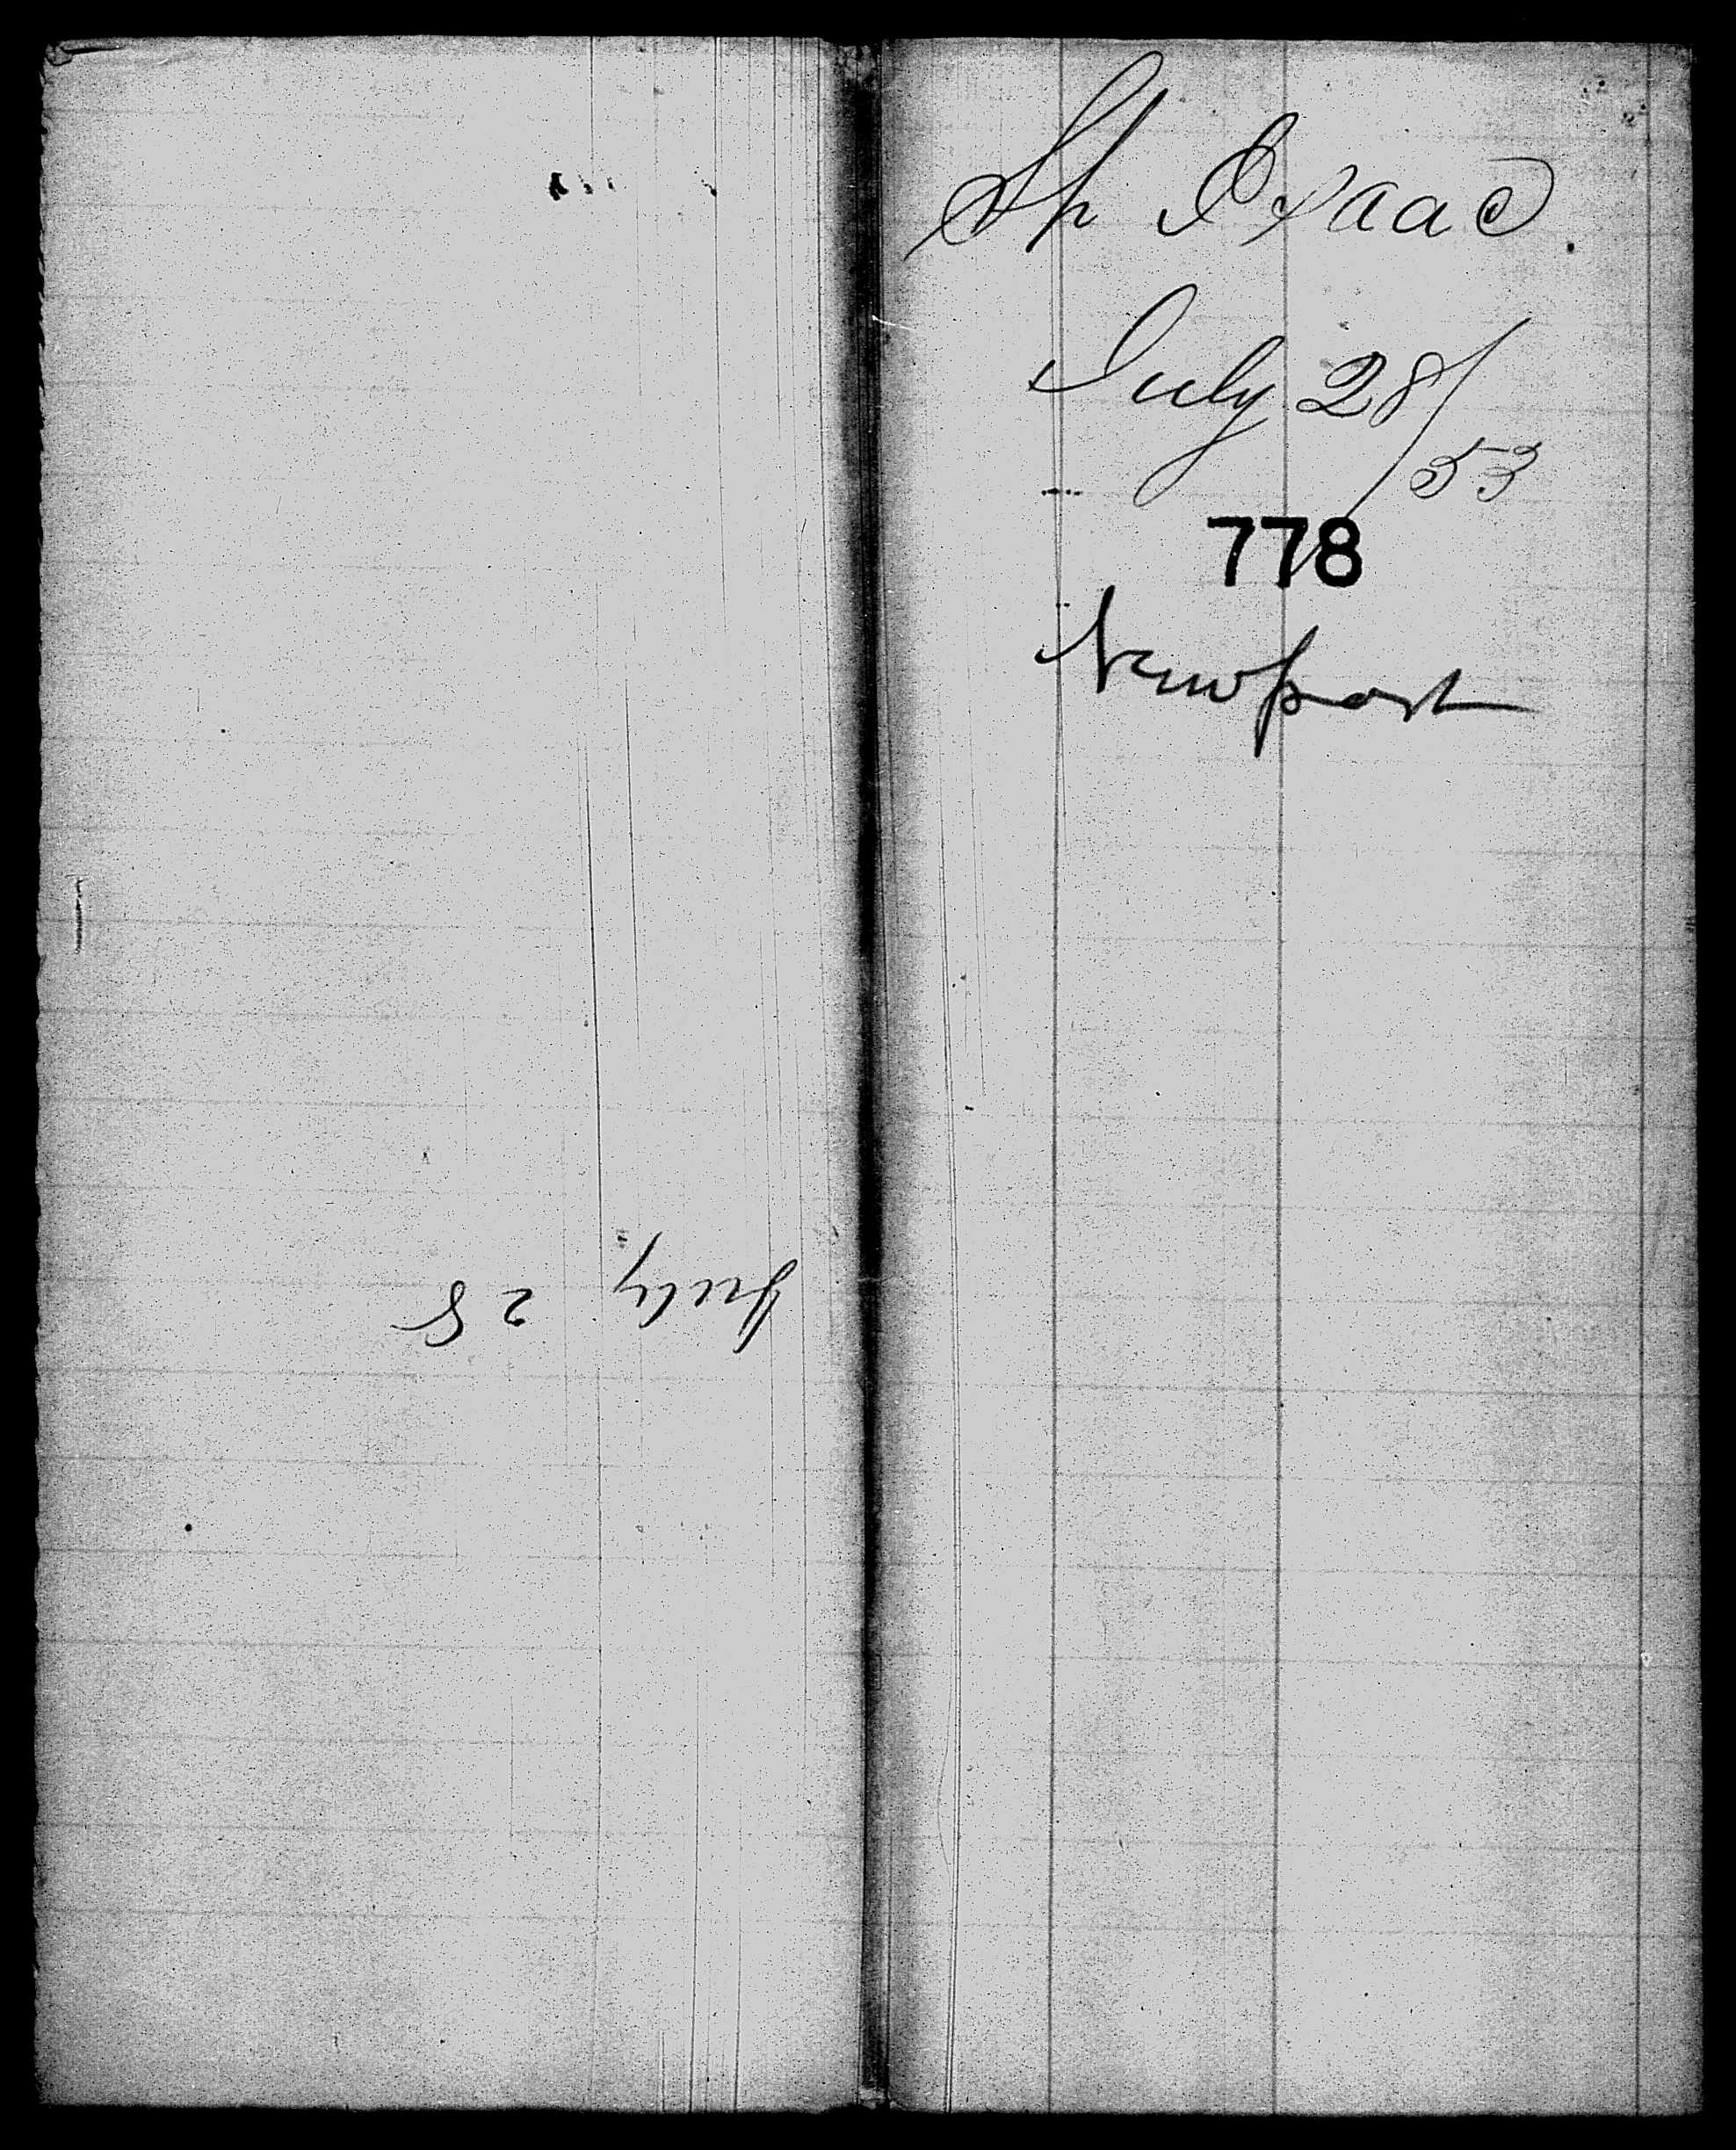 July 28
Sh Isaac.
July 28/53
778
Newport